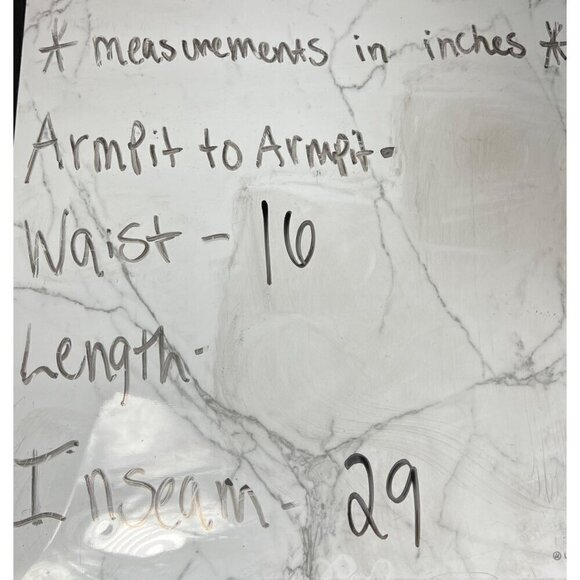 * measurements in inches *
Armpit to Armpit-
Waist - 16
Length-
Inseam - 29